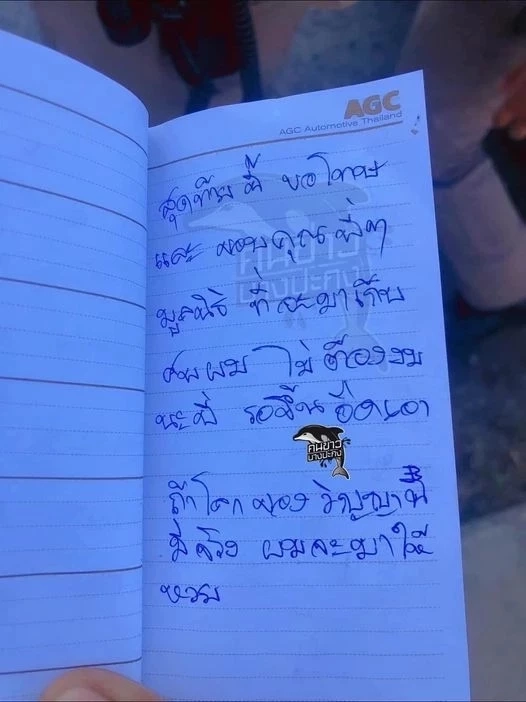 AGC
AGC Automotive Thailand
สุดท้าย นี้ ขอโทษ
และ ขอบคุณ พี่ๆ
มูลนิธิ ที่จะมาเก็บ
ศพผม ไม่ต้องงม
นะพี่ รอขึ้นอืดเอา
คนข่าว
บางปะกง
ถ้าโลกของวิญญาณ
มีจริง ผมจะมาให้
หวย